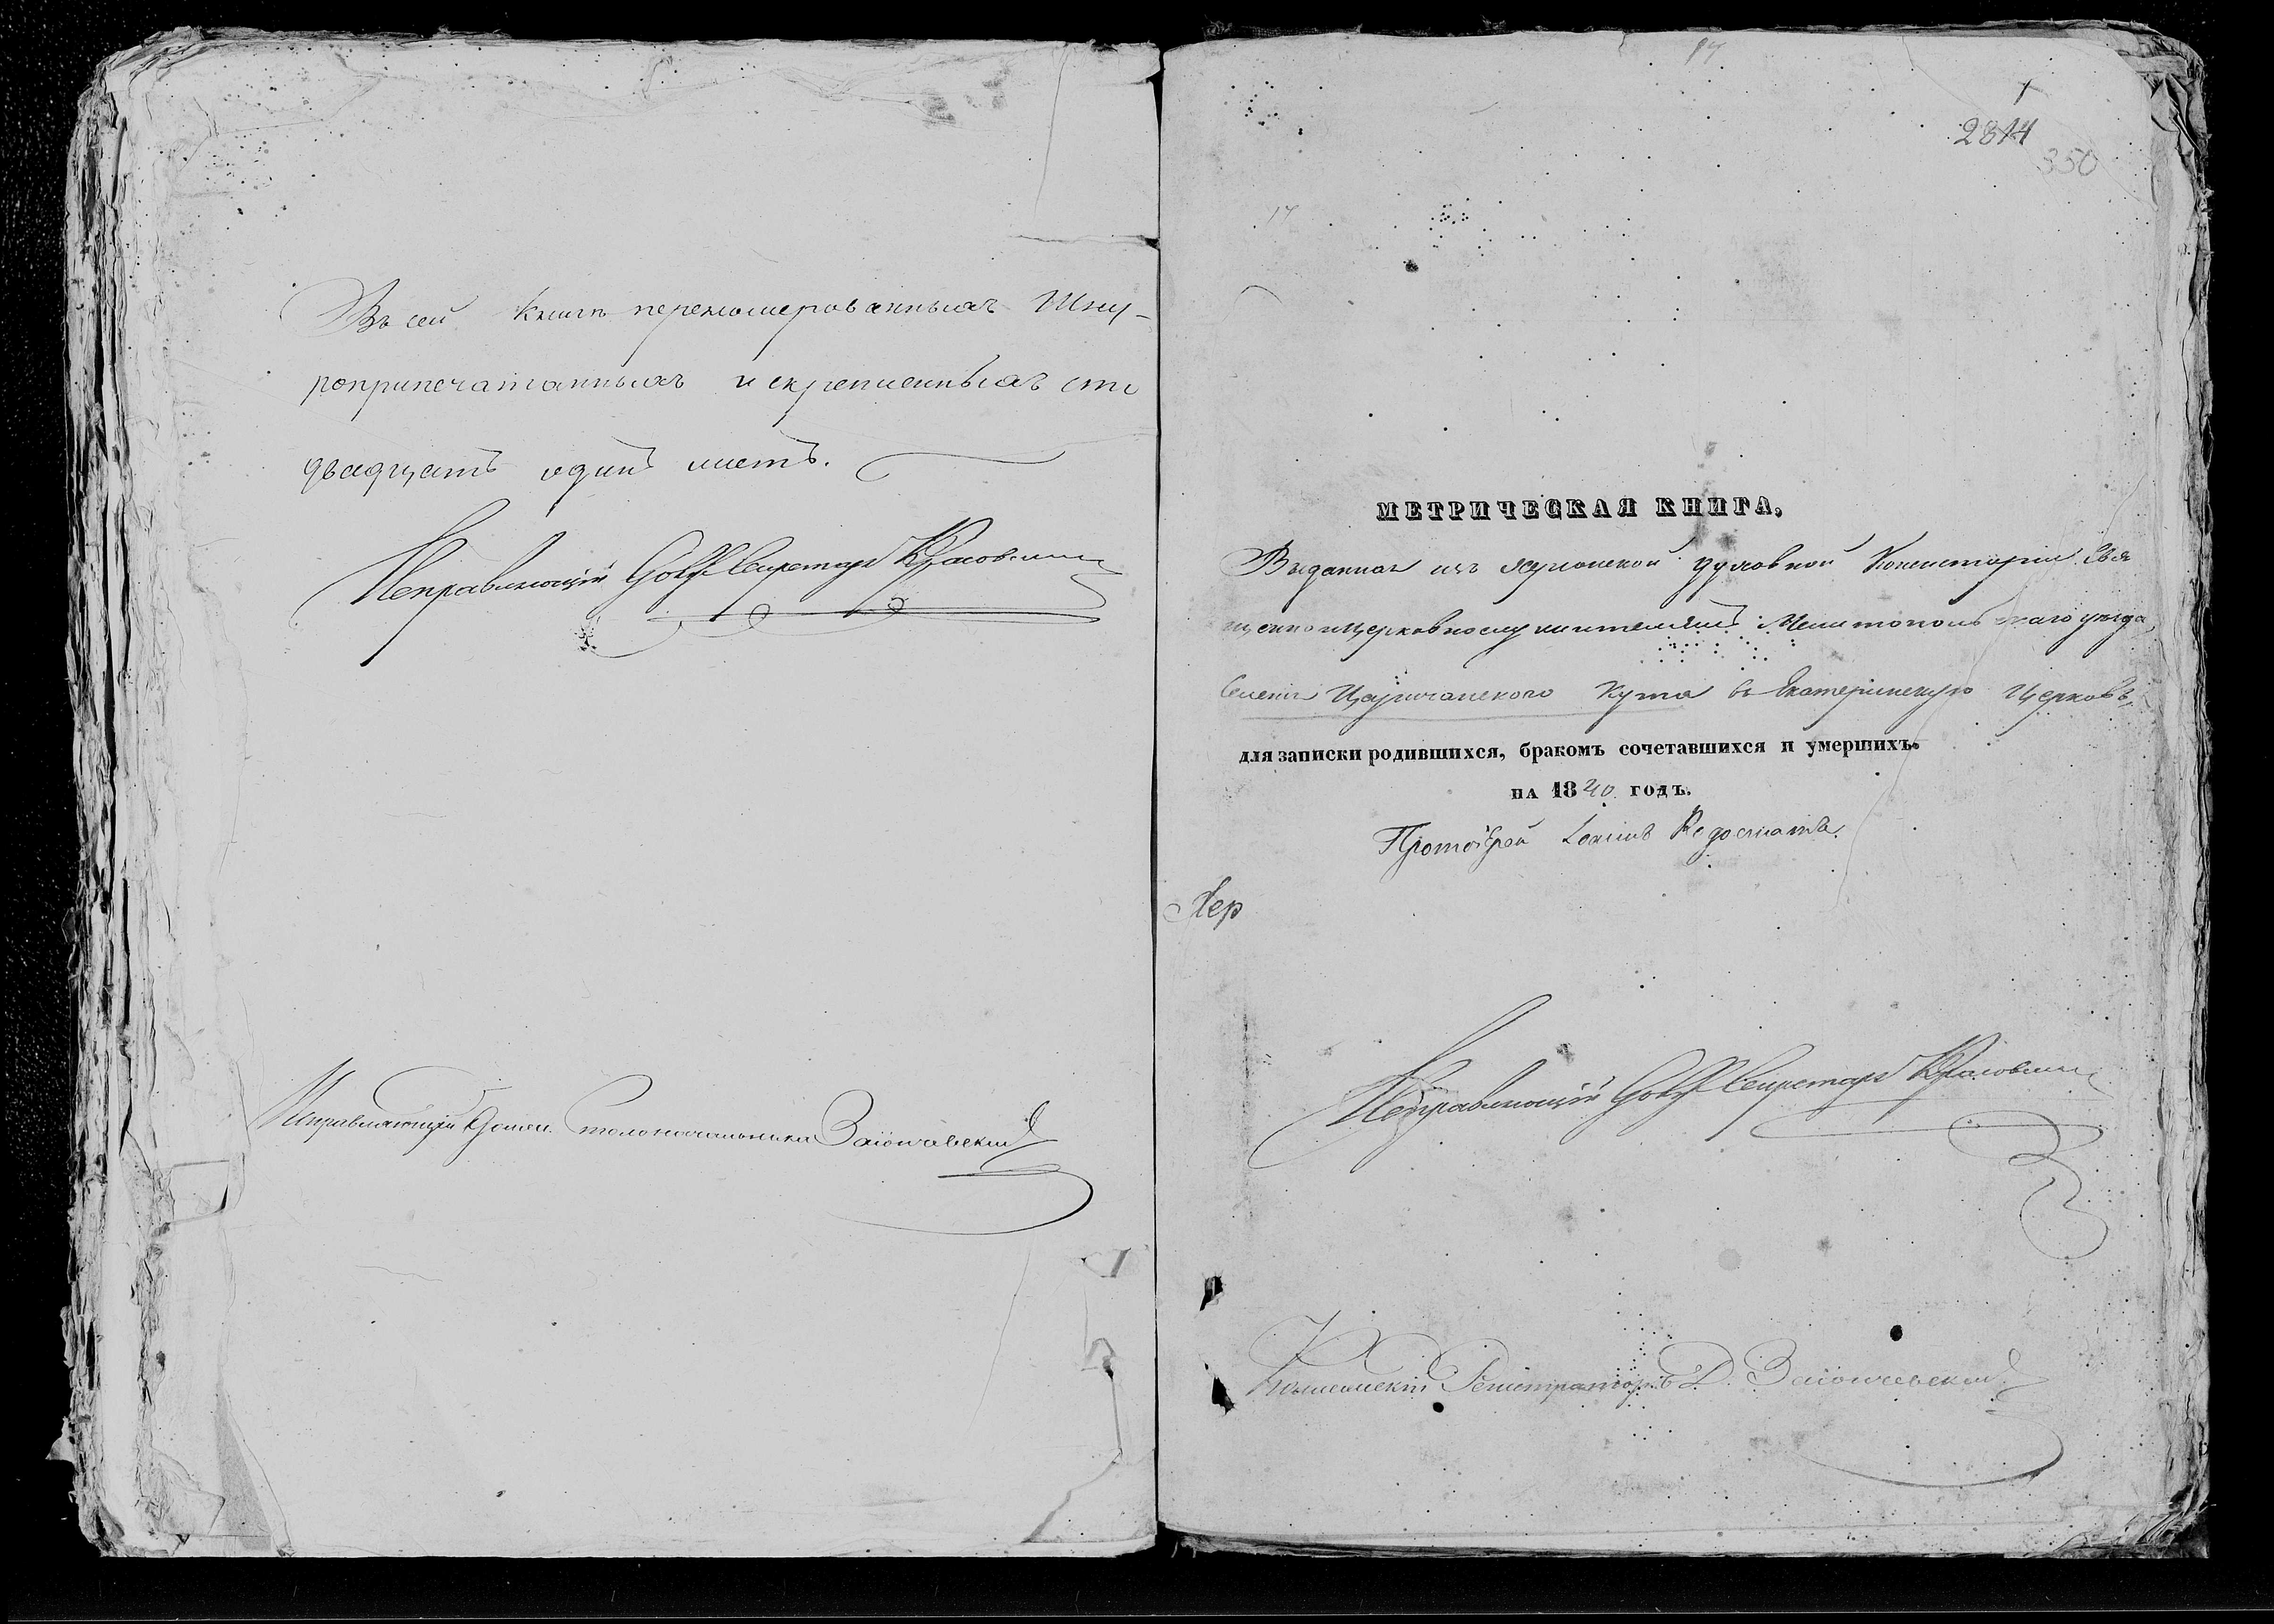 Въ сей Книгѣ перенумерованныхъ Шну-
роприпечатанныхъ и скрепленныхъ сто
двадцать один листъ.
Исправляющій Секретарь
Исправляющій Столоначальника Заіончевскій
17
2814
350
17
МЕТРИЧЕСКАЯ КНИГА,
Выданная изъ Херсонской духовной Консисторіи Свя
щенноцерковнослужителямъ Мелитопольскаго уѣзда
Селенія Царичанского Кута въ Екатеринскую Церковь,
для записки родившихся, бракомъ сочетавшихся и умершихъ.
НА 1840 ГОДЪ.
Протоіерей Іоаннъ
Хер
Исправляющій Секретарь
Коллежскій Регистраторъ Д. Заіончевскій